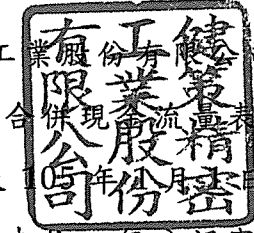 工業股份有限公
合併現金流量表
105年1月1日
健策精密
工業股份
有限公司